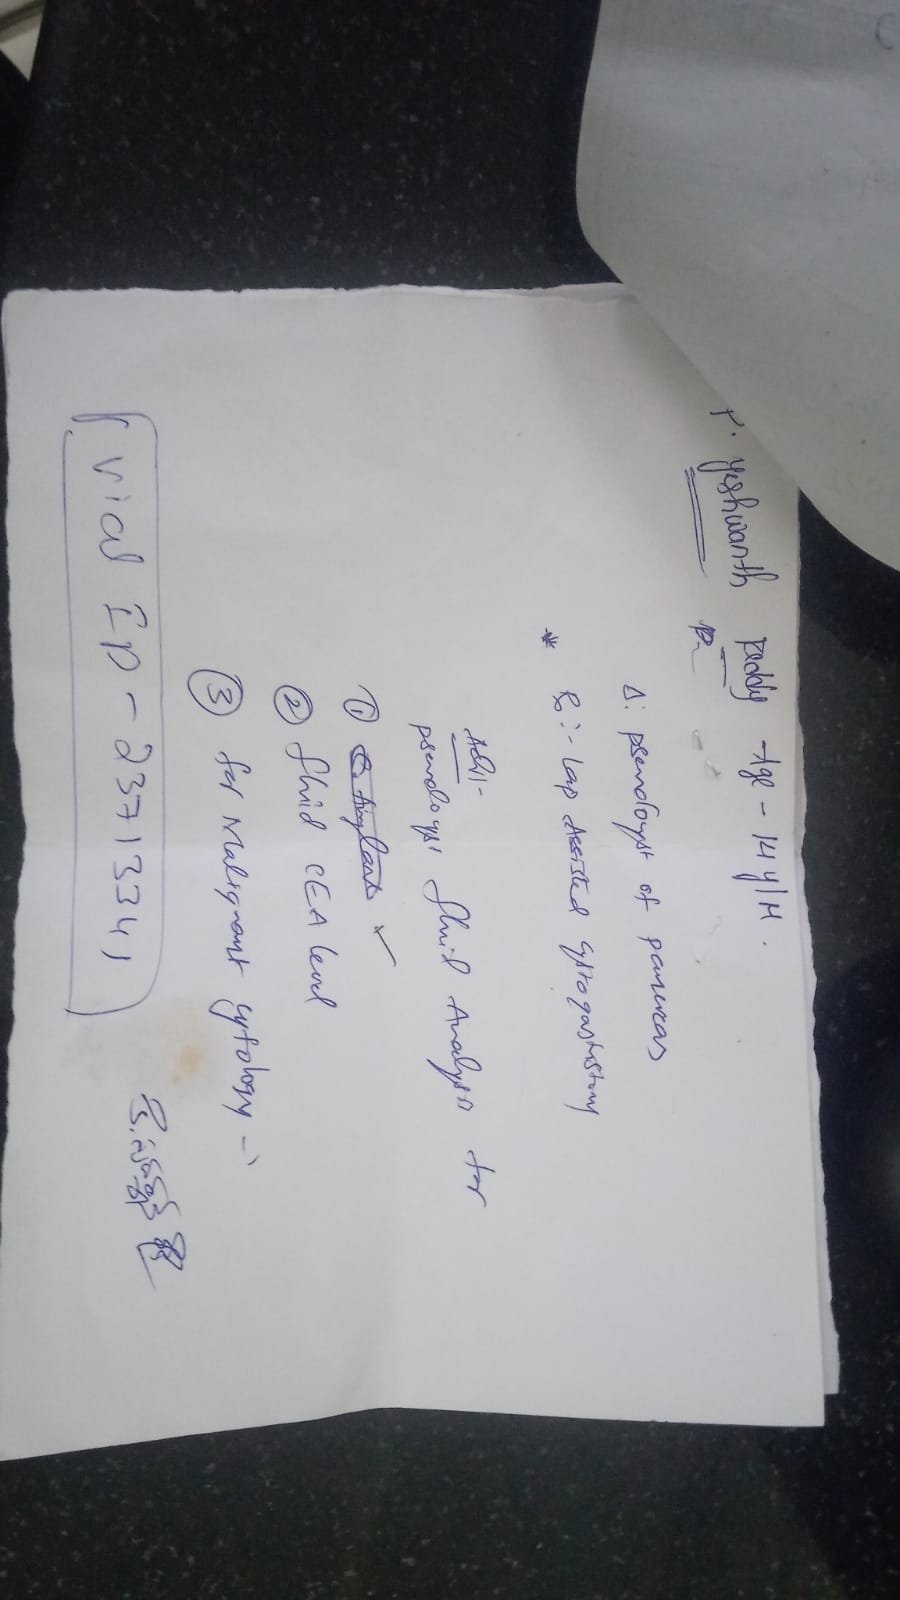 P. Yeshwanth Reddy Age - 14 y/M.
Δ: pseudocyst of pancreas
* Lap Assisted Cystogastrostomy
Adv:-
pseudocyst fluid Analysis for
①
② fluid CEA level
③ for Malignant cytology -
Vial ID - 2371334)